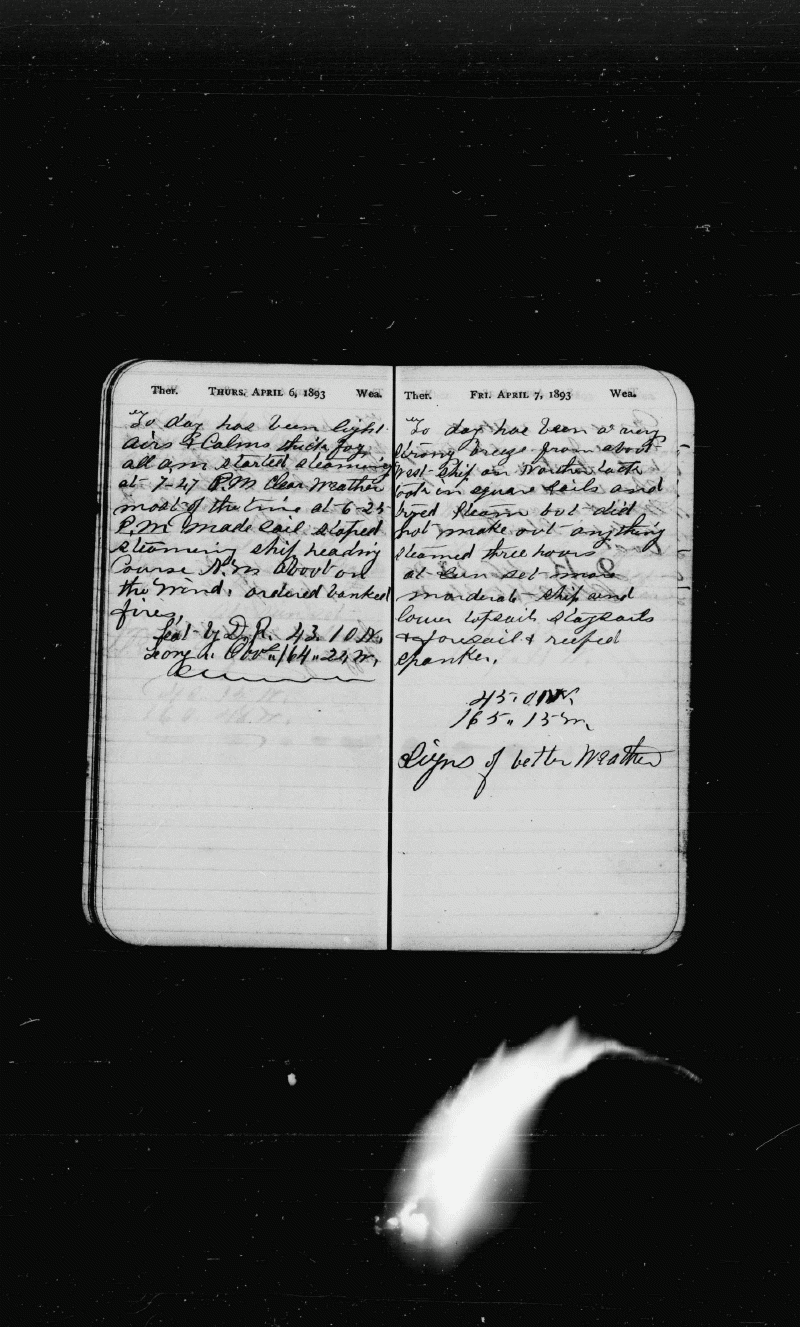 Ther. THURS. APRIL 6, 1893 Wea.
To day has been light
airs & Calms thick fog
all am started steaming
at 7-47 P.M Clear Weather
most of the time at 6-25
P.M made sail stoped
steaming ship heading
Course N.W. about on
the Wind, ordered banked
fires,
Lat by D.R. 43 10 N,
Long. 164 " 22 W,
Ther. FRI. APRIL 7, 1893 Wea.
To day has been a very
strong breeze from about
West ship on Northn tack
took in square sails and
tryed Steam but did
not make out anything
steamed three hours
at Sun set more
morderate ship und
lower topsails staysails
& foresail & reefed
spanker,
43 " 01 N,
165 " 15 W
Signs of better Weather